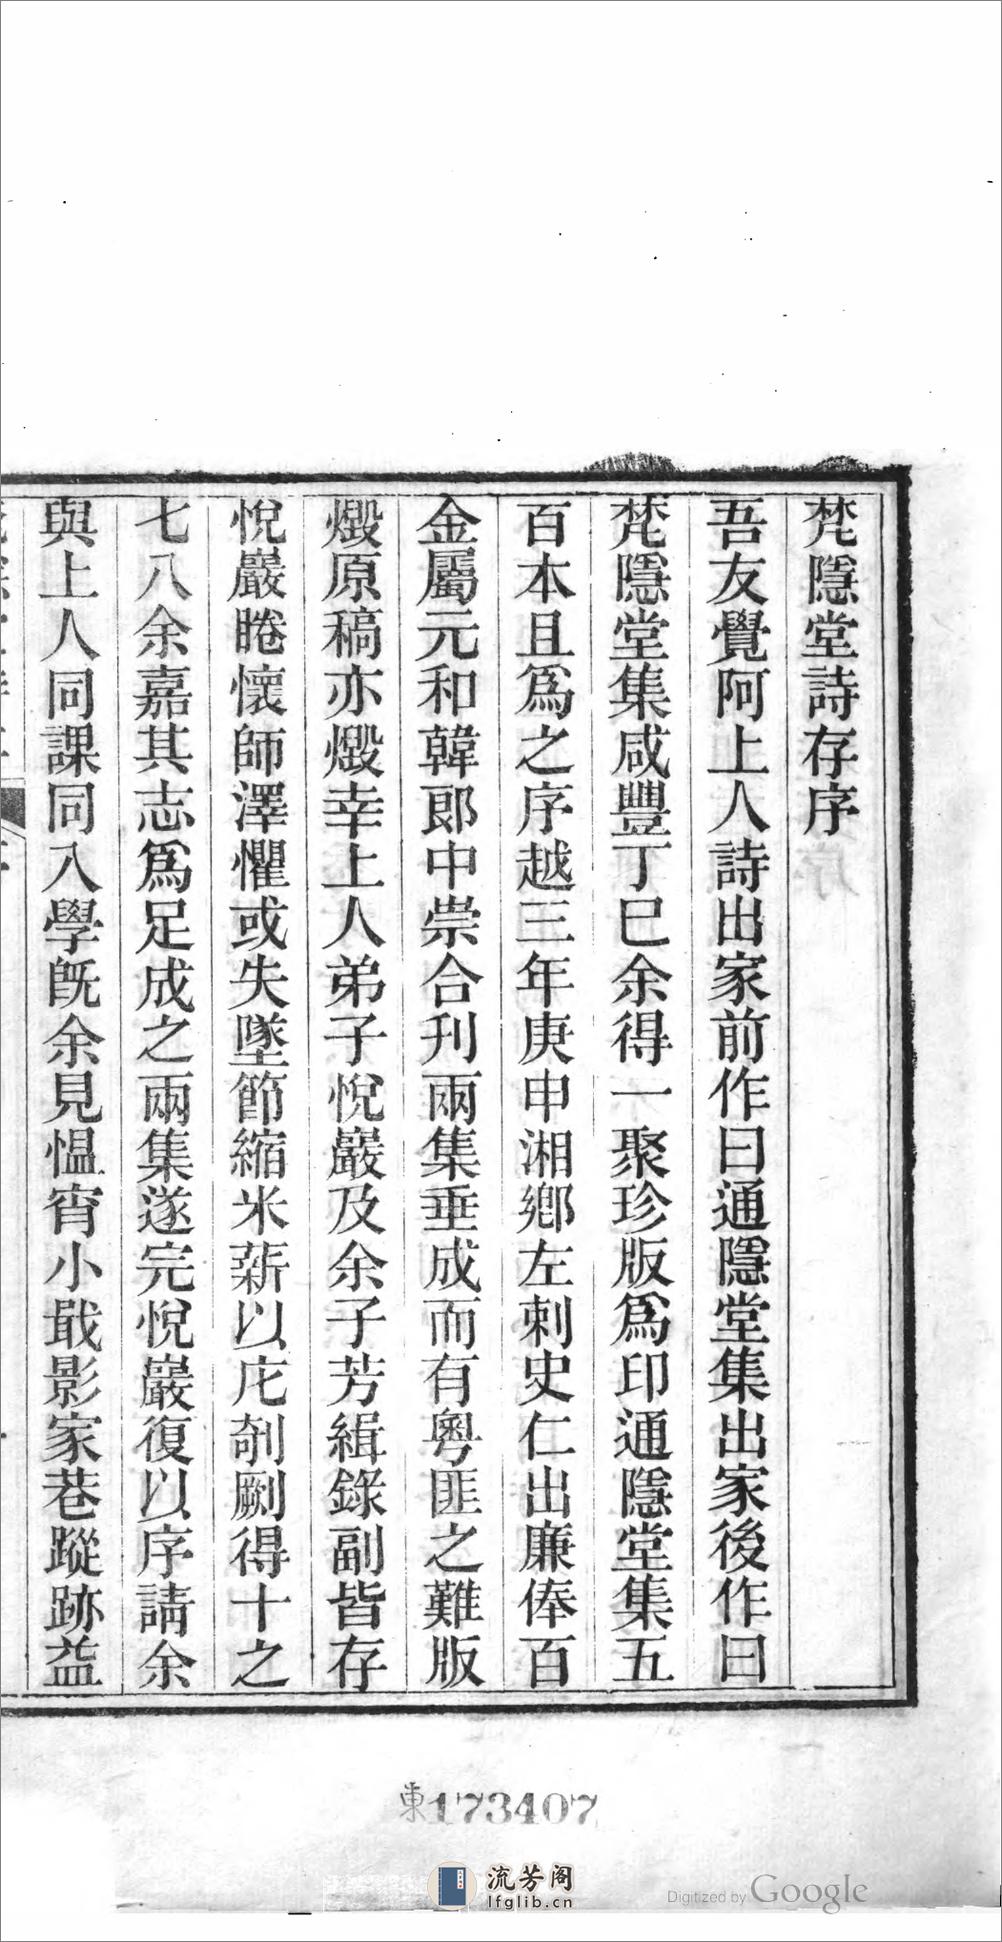 梵隱堂詩存序
吾友覺阿上人詩出家前作曰通隱堂集出家後作曰
梵隱堂集咸豐丁巳余得一聚珍版爲印通隱堂集五
百本且爲之序越三年庚申湘鄉左刺史仁出廉俸百
金屬元和韓郎中崇合刊兩集垂成而有粵匪之難版
燬原稿亦燬幸上人弟子悅巖及余子芳緝錄副皆存
悅巖睠懷師澤懼或失墜節縮米薪以庀剞劂得十之
七八余嘉其志爲足成之兩集遂完悅巖復以序請余
與上人同課同入學旣余見慍宵小戢影家巷蹤跡益
東173407
流芳阁
lfglib.cn
Digitized by Google